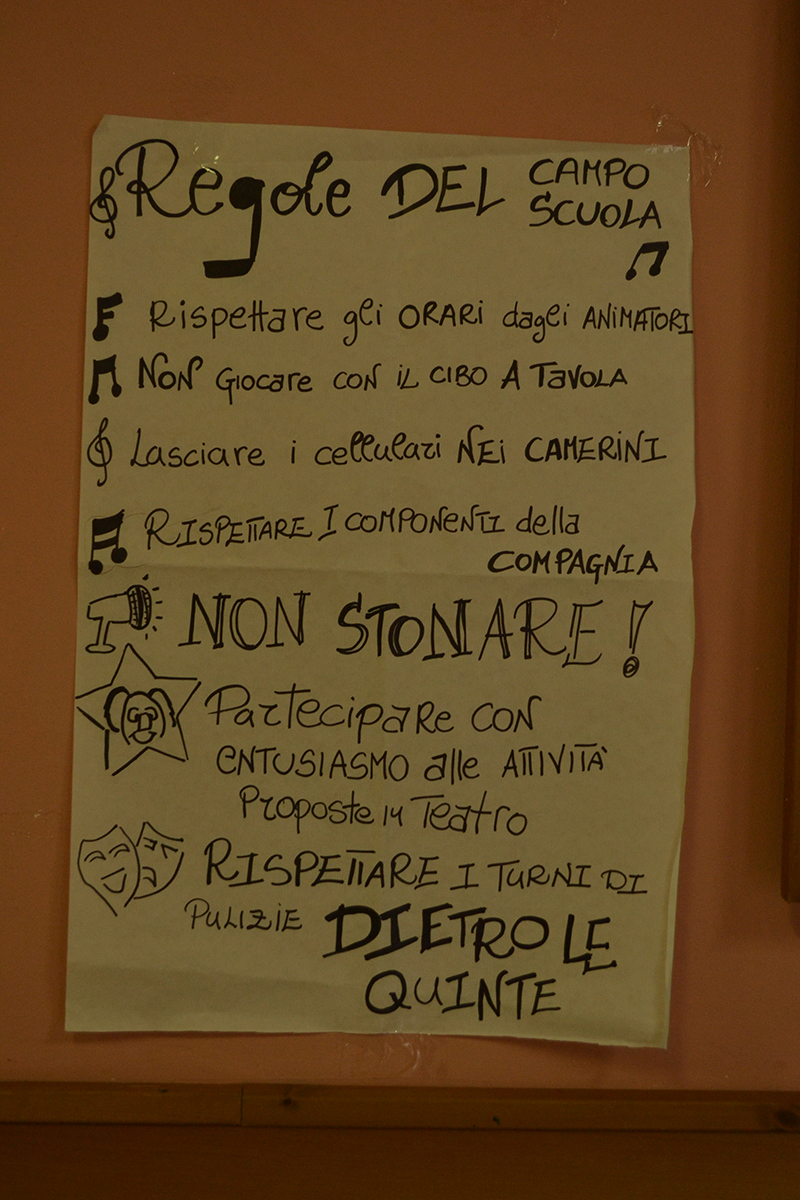 Regole DEL CAMPO SCUOLA
Rispettare gli ORARi dagli ANiMATORI
NON Giocare CON iL CIBO A TaVOLA
Lasciare i cellulari NEi CAMERiNI
RISPETTARE I COMPONENTI della
COMPAGNIA
NON STONARE!
Partecipare CON
ENTUSIASMO alle ATTIVITÀ
Proposte in Teatro
RISPETTARE I TURNI DI
PULIZIE DIETRO LE
QUINTE